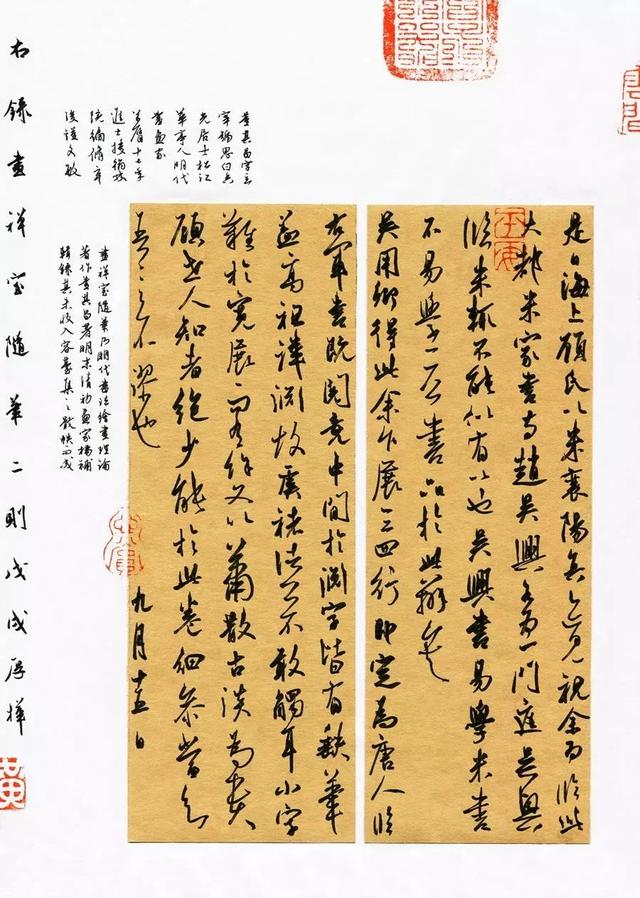 是日海上顧氏以米襄陽真迹見視余為臨此
大都米家書与趙吳興各為一門庭吳興
臨米輒不能似有以也吳興書易學米書
不易學一段書品於此辨矣
吳用卿得此余乍展三四行即定為唐人臨
右軍書既閱竟中間於淵字皆有缺筆
蓋高祖諱淵故虞褚諸公不敢觸耳小字
難於寬展而有餘又以蕭散古淡為貴
顧世人知者絕少能於此卷細參當知
吾言之不謬也
九月十五日
董其昌字玄
宰號思白香
光居士松江
華亭人明代
書畫家
萬曆十七年
進士授翰林
院編修卒
後謚文敏
畫禪室隨筆乃明代書法繪畫理論
著作董其昌著明末清初畫家楊補
輯錄其未收入容臺集之散帙而成
右錄畫禪室隨筆二則戊戌厚樺
黃